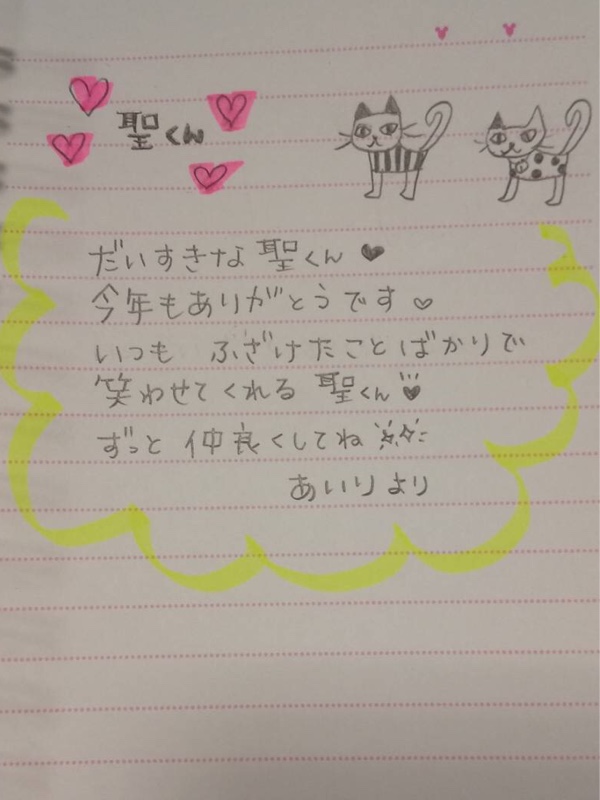 聖くん
だいすきな 聖くん♥
今年もありがとうです♡
いつも ふざけたことばかりで
笑わせてくれる 聖くん♥
ずっと 仲良くしてね☆☆
あいりより